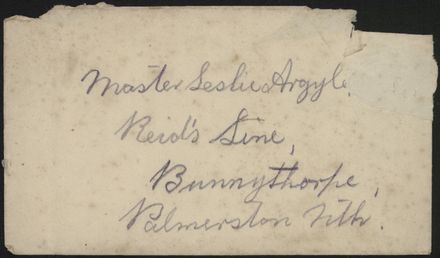 Master Leslie Argyle
Reid's Line,
Bunnythorpe,
Palmerston Nth.